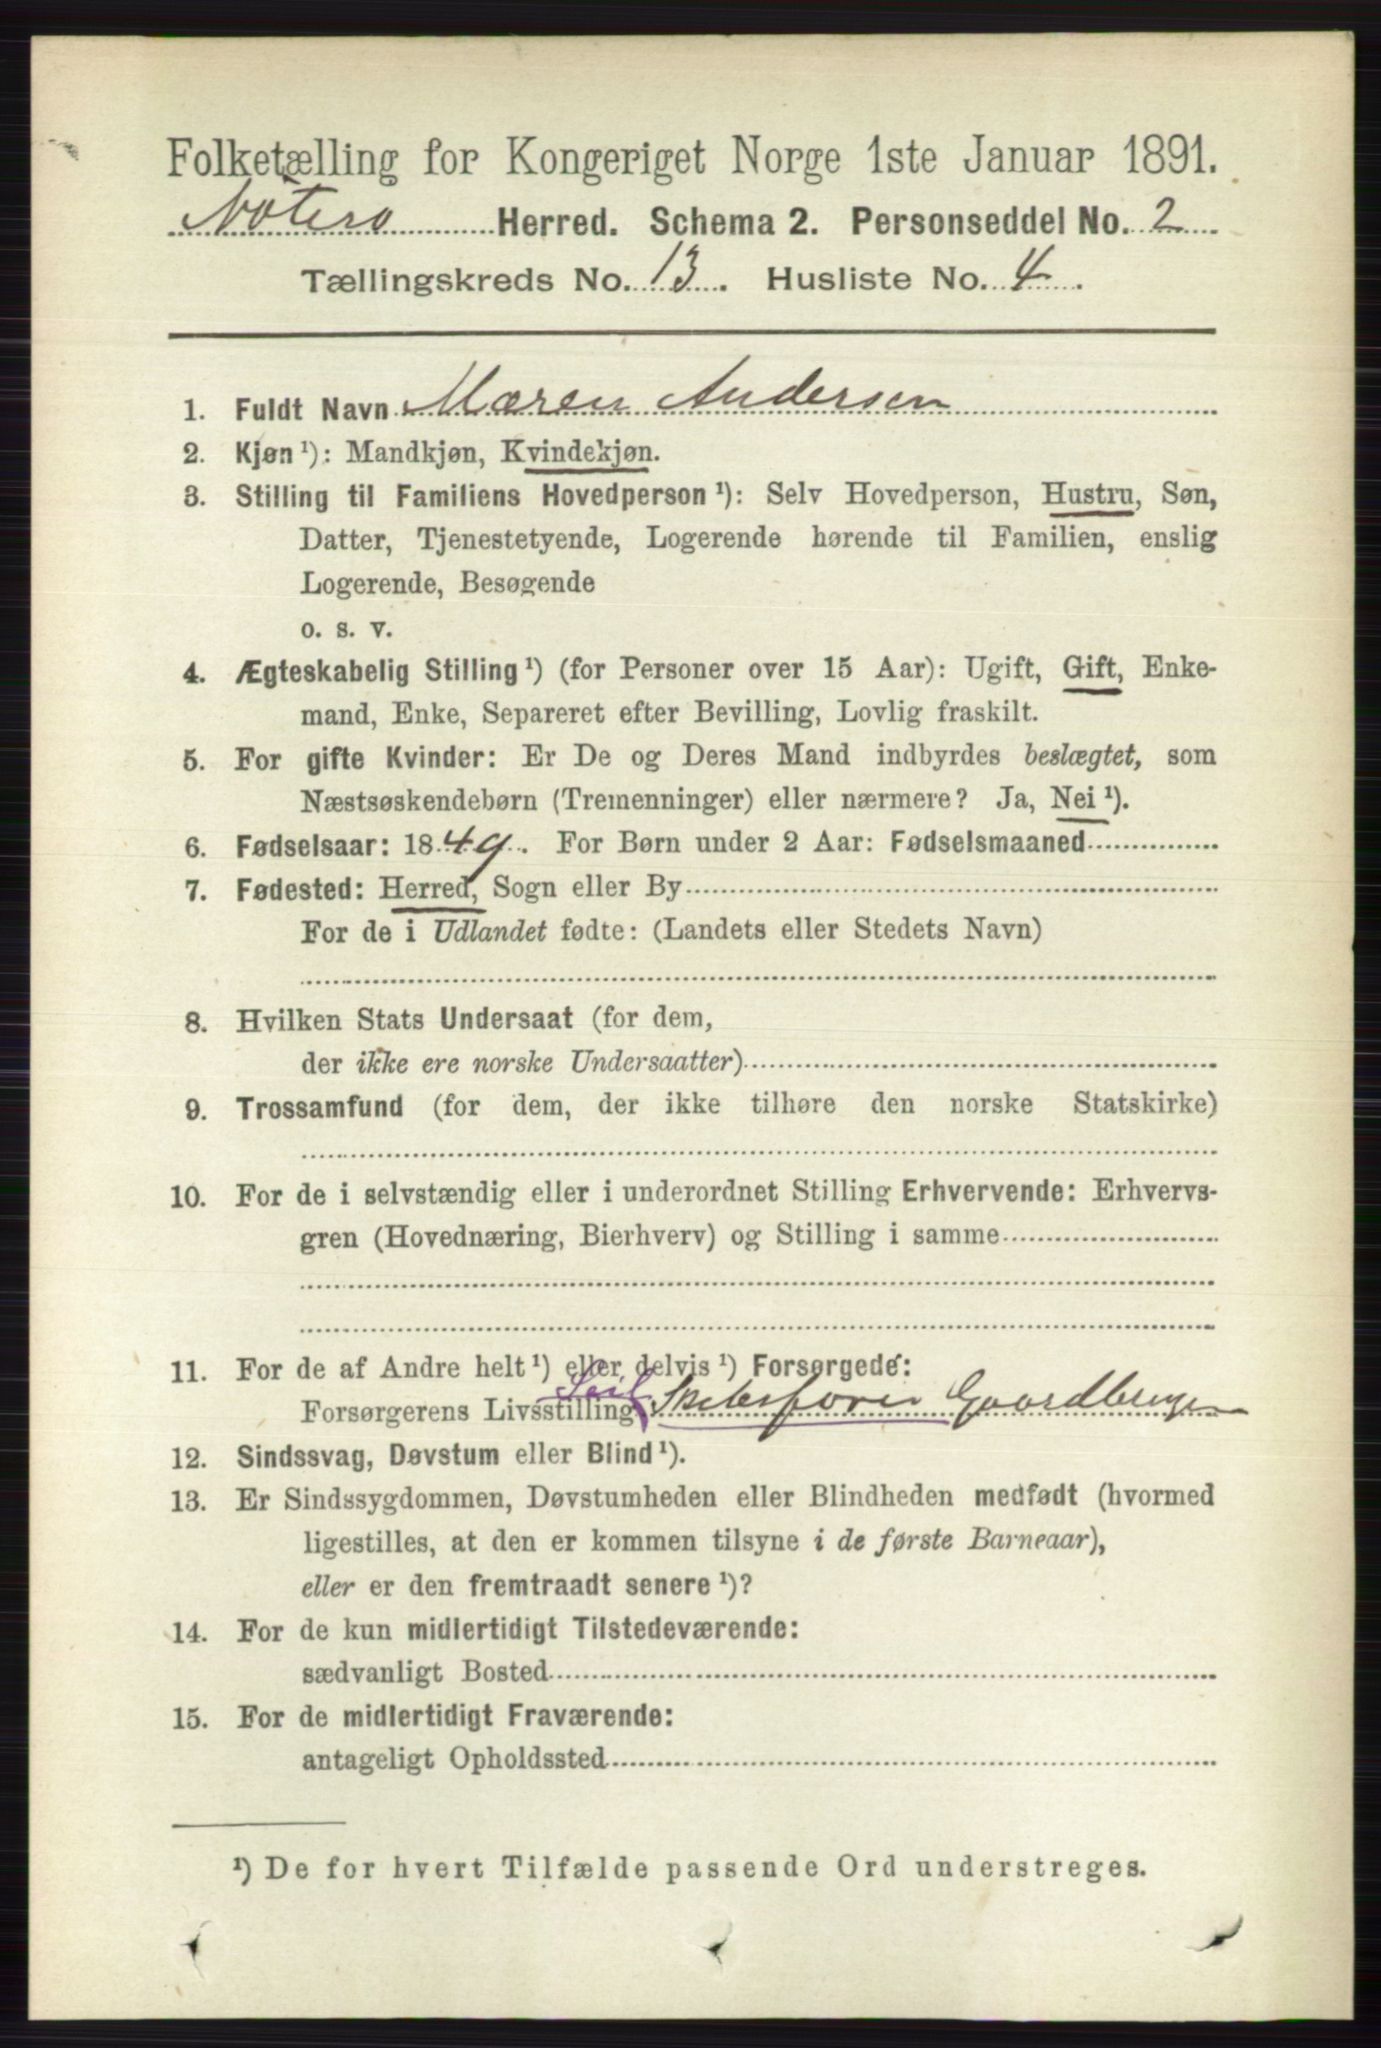 Folketælling for Kongeriget Norge 1ste Januar 1891.
Nøterø Herred. Schema 2. Personseddel No. 2
Tællingskreds No. 13. Husliste No. 4.
1. Fuldt Navn Maren Andersen
2. Kjøn ¹): Mandkjøn, Kvindekjøn.
3. Stilling til Familiens Hovedperson ¹): Selv Hovedperson, Hustru, Søn,
Datter, Tjenestetyende, Logerende hørende til Familien, enslig
Logerende, Besøgende
o. s. v.
4. Ægteskabelig Stilling ¹) (for Personer over 15 Aar): Ugift, Gift, Enke-
mand, Enke, Separeret efter Bevilling, Lovlig fraskilt.
5. For gifte Kvinder: Er De og Deres Mand indbyrdes beslægtet, som
Næstsøskendebørn (Tremenninger) eller nærmere? Ja, Nei ¹).
6. Fødselsaar: 1849. For Børn under 2 Aar: Fødselsmaaned
7. Fødested: Herred, Sogn eller By
For de i Udlandet fødte: (Landets eller Stedets Navn)
8. Hvilken Stats Undersaat (for dem,
der ikke ere norske Undersaatter)
9. Trossamfund (for dem, der ikke tilhøre den norske Statskirke)
10. For de i selvstændig eller i underordnet Stilling Erhvervende: Erhvervs-
gren (Hovednæring, Bierhverv) og Stilling i samme
11. For de af Andre helt ¹) eller delvis ¹) Forsørgede:
Seil
Forsørgerens Livsstilling Skibsfører Gaardbruger
12. Sindssvag, Døvstum eller Blind ¹).
13. Er Sindssygdommen, Døvstumheden eller Blindheden medfødt (hvormed
ligestilles, at den er kommen tilsyne i de første Barneaar),
eller er den fremtraadt senere ¹)?
14. For de kun midlertidigt Tilstedeværende:
sædvanligt Bosted
15. For de midlertidigt Fraværende:
antageligt Opholdssted
¹) De for hvert Tilfælde passende Ord understreges.